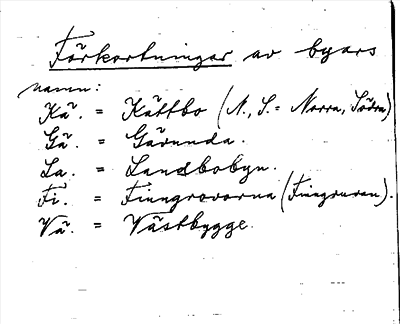 Förkortningar av byars
namn:
Kä. = Kättbo (N., S. = Norra, Södra)
Gä. = Gärunda.
La. = Landbobyn.
Fi. = Finngrovorna (Finngruvan).
Vä. = Västbygge.